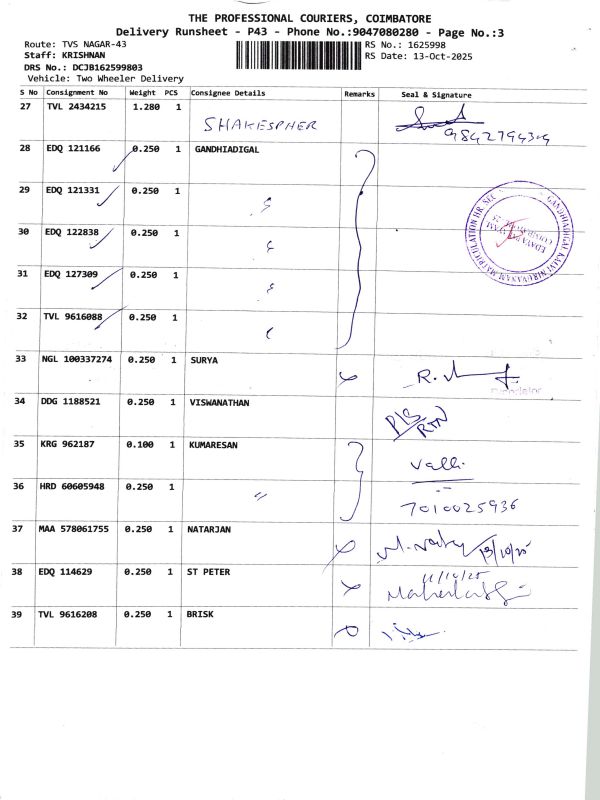 THE PROFESSIONAL COURIERS, COIMBATORE
Delivery Runsheet - P43 - Phone No.:9047080280 - Page No.:3
Route: TVS NAGAR-43 RS No.: 1625998
Staff: KRISHNAN RS Date: 13-Oct-2025
DRS No.: DCJB162599803
Vehicle: Two Wheeler Delivery
S No Consignment No Weight PCS Consignee Details Remarks Seal & Signature
27 TVL 2434215 1.280 1 SHAKESPHER
28 EDQ 121166 0.250 1 GANDHIADIGAL
29 EDQ 121331 0.250 1
30 EDQ 122838 0.250 1
31 EDQ 127309 0.250 1
32 TVL 9616088 0.250 1
GANDHIADIGAL KALVI NIRUVANAM MATRICULATION HR. SEC
33 NGL 100337274 0.250 1 SURYA
34 DDG 1188521 0.250 1 VISWANATHAN
35 KRG 962187 0.100 1 KUMARESAN Valli
36 HRD 60605948 0.250 1 〃 7010025936
37 MAA 578061755 0.250 1 NATARJAN 13/10/25
38 EDQ 114629 0.250 1 ST PETER
39 TVL 9616208 0.250 1 BRISK